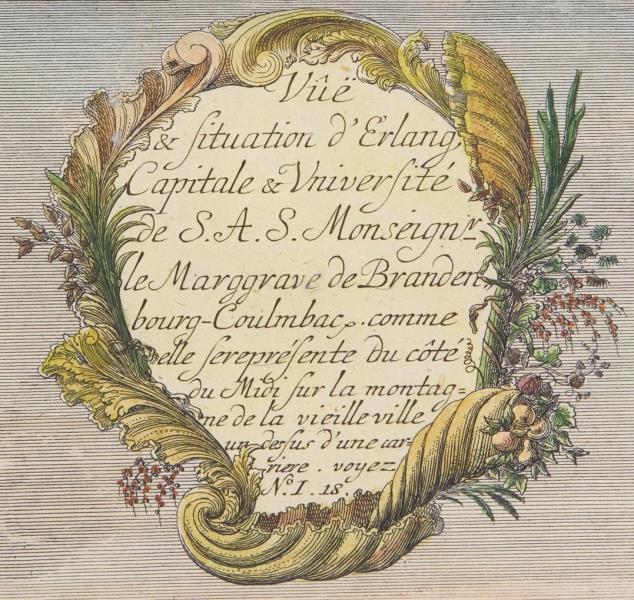 Vûë
& situation d'Erlang,
Capitale & Vniversité
de S. A. S. Monseign.r
le Marggrave de Branden
bourg-Coulmbac, comme
elle serepresente du côté
du Midi sur la montag=
ne de la vieille ville
un dessus d'une car-
riere. voyez
No. I. 18.